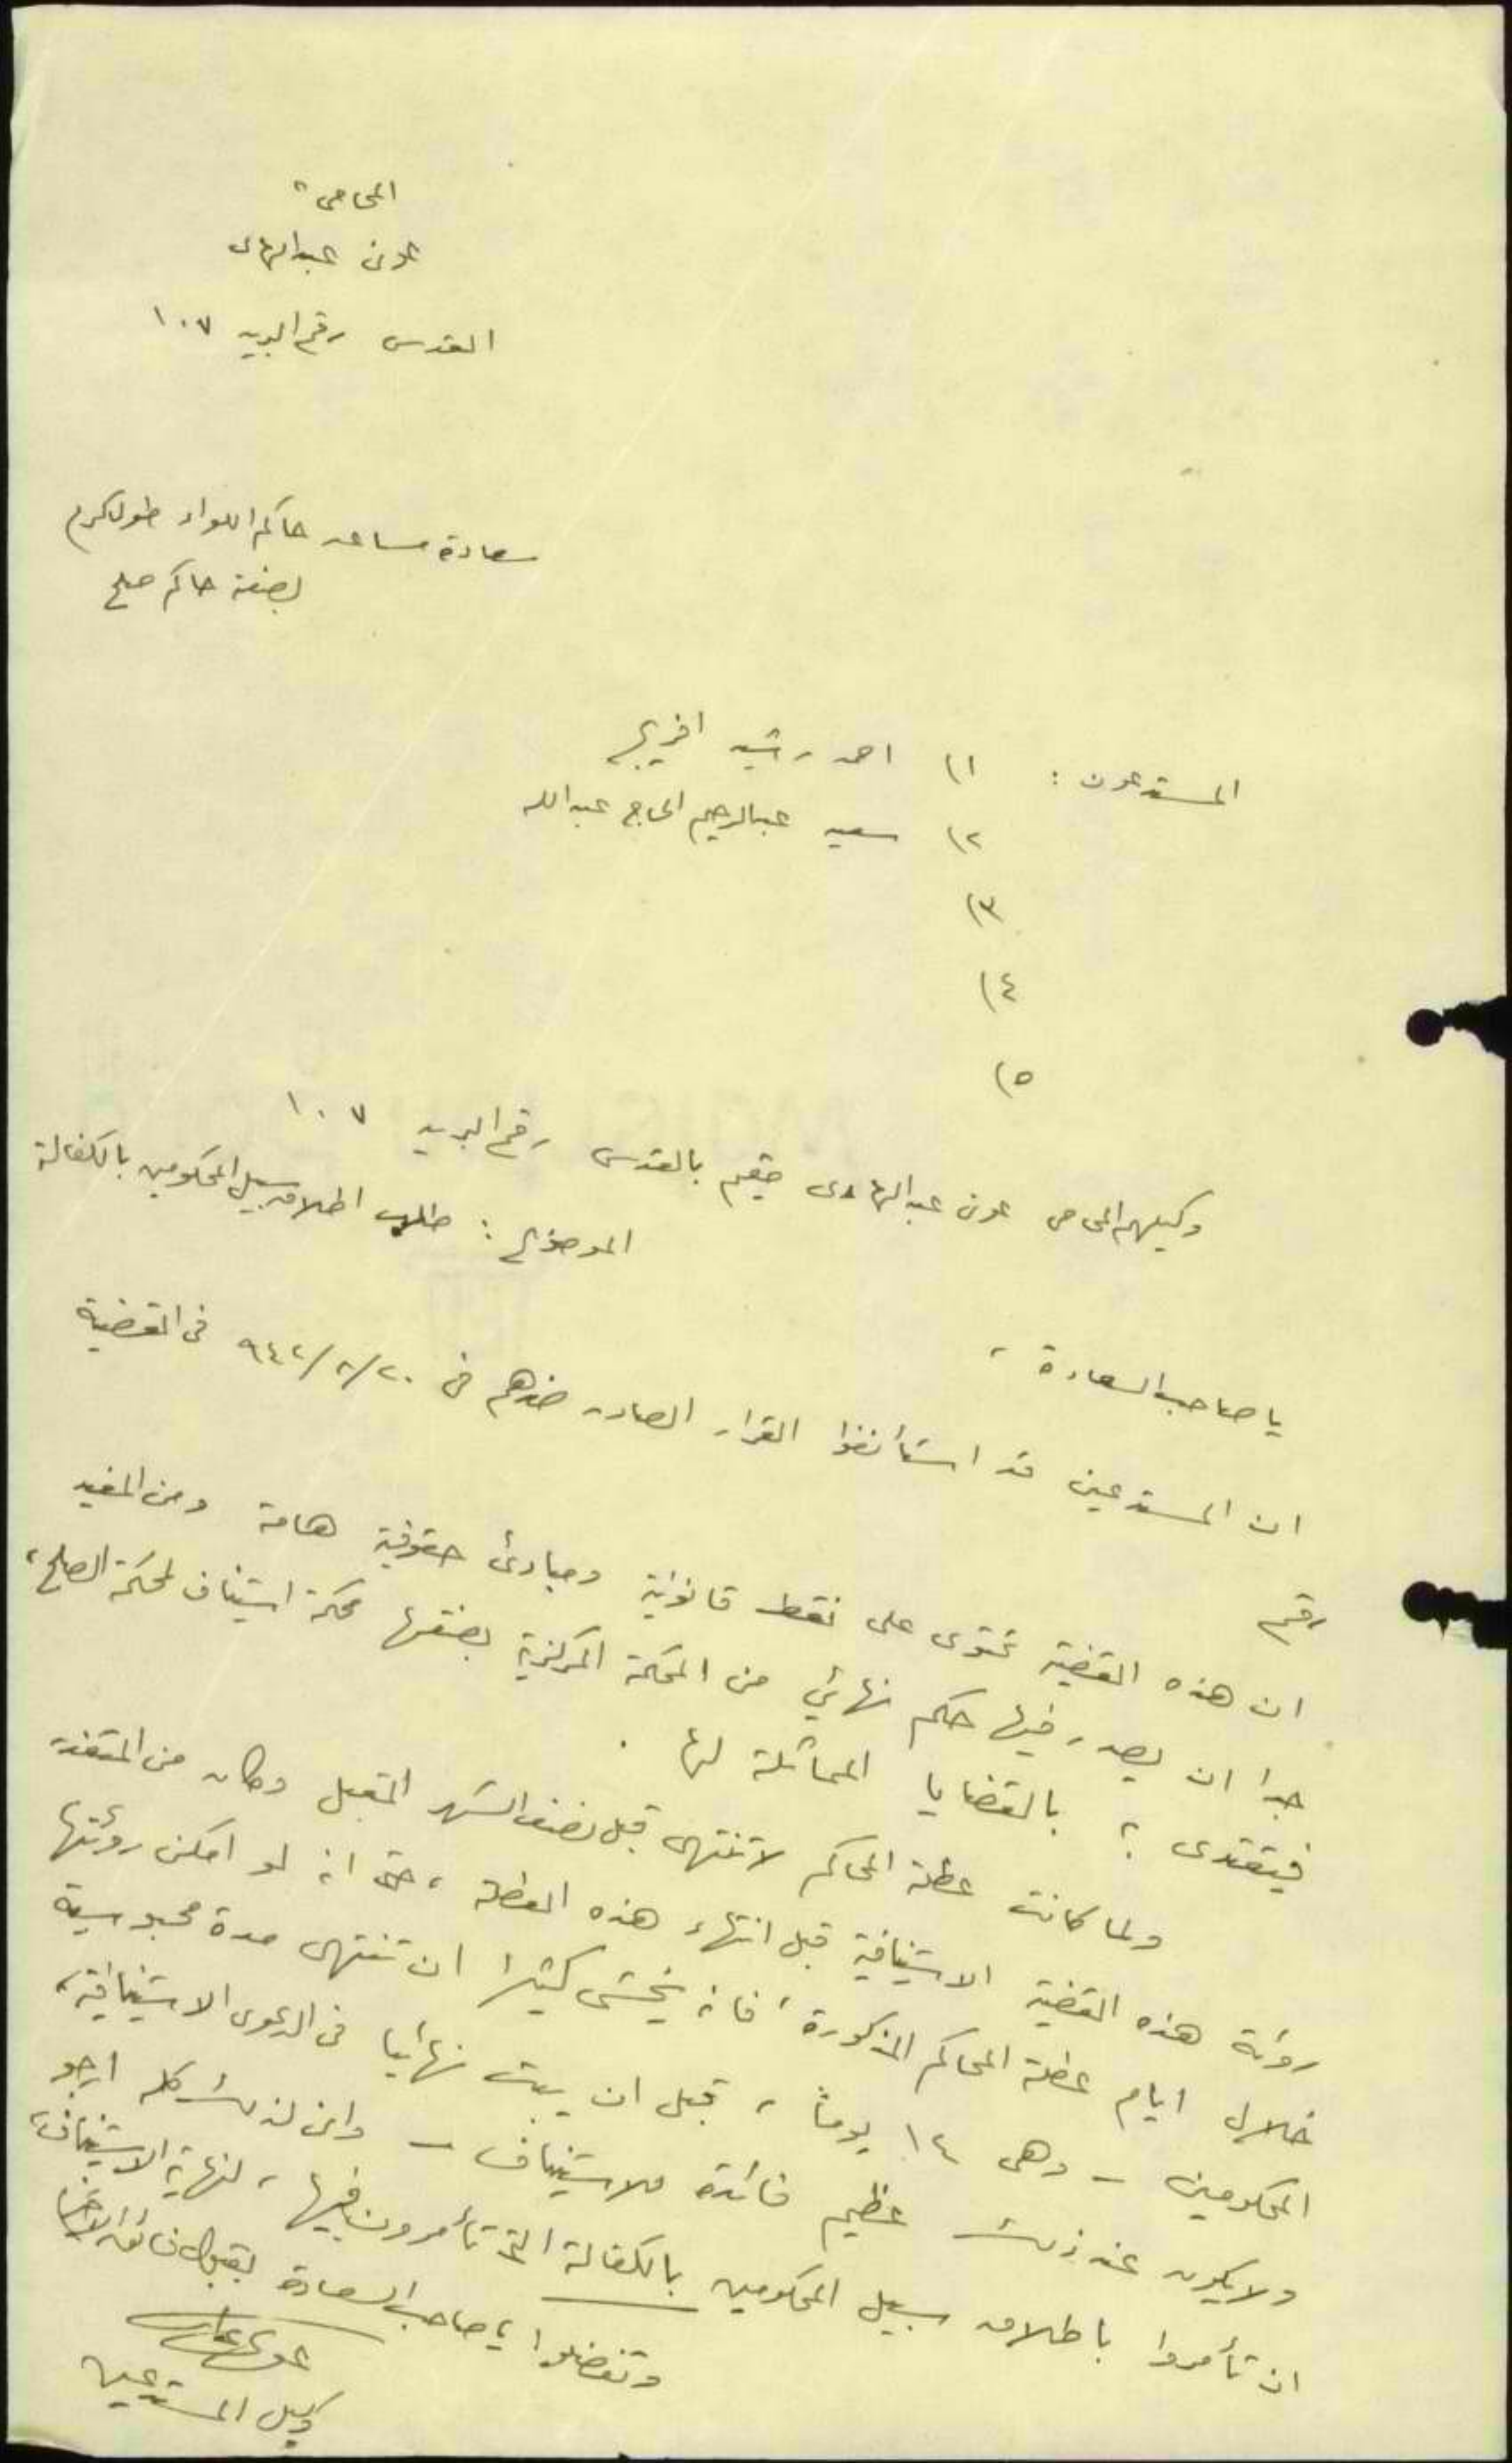 المحامي
عوني عبدالهادي
القدس رقم البريد ١٠٧
سعادة مساعد حاكم اللواء طولكرم
بصفته حاكم صلح
المستدعون : ١) احمد رشيد
٢) سعيد عبدالرحيم الحاج عبدالله
٣)
٤)
٥)
وكيلهم المحامي عوني عبدالهادي مقيم بالقدس رقم البريد ١٠٧
الموضوع : طلب اطلاق سبيل المحكومين بالكفالة
يا صاحب السعادة ،
ان المستدعين قد استأنفوا القرار الصادر ضدهم في ٢٠/٨/٩٤٢ في القضية
رقم
ان هذه القضية تحتوي على نقط قانونية ومبادئ حقوقية هامة ومن المفيد
جدا ان يصدر فيها حكم نهائي من المحكمة المركزية بصفتها محكمة استيناف لمحكمة الصلح ،
فيقتدى ؟ بالقضايا المماثلة لها .
ولما كانت عطلة المحاكم لا تنتهي قبل نصف الشهر المقبل وكان من المتعذر
رؤية هذه القضية الاستينافية قبل انتهاء هذه العطلة ، حتى انه لو امكن رؤيتها
خلال ايام عطلة المحاكم المذكورة ، فانه يخشى كثيرا ان تنتهي مدة محبوسية
المحكومين - وهي ١٤ يوماً ، قبل ان يبت نهائيا في الدعوى الاستينافية ،
ولا يكون عند ذلك عظيم فائدة للاستيناف - واني لذلك كله ارجو
ان تأمروا باطلاق سبيل المحكومين بالكفالة التي تأمرون فيها ، لنهاية الاستيناف ،
وتفضلوا يا صاحب السعادة بقبول فائق الاحترام
وكيل المستدعين